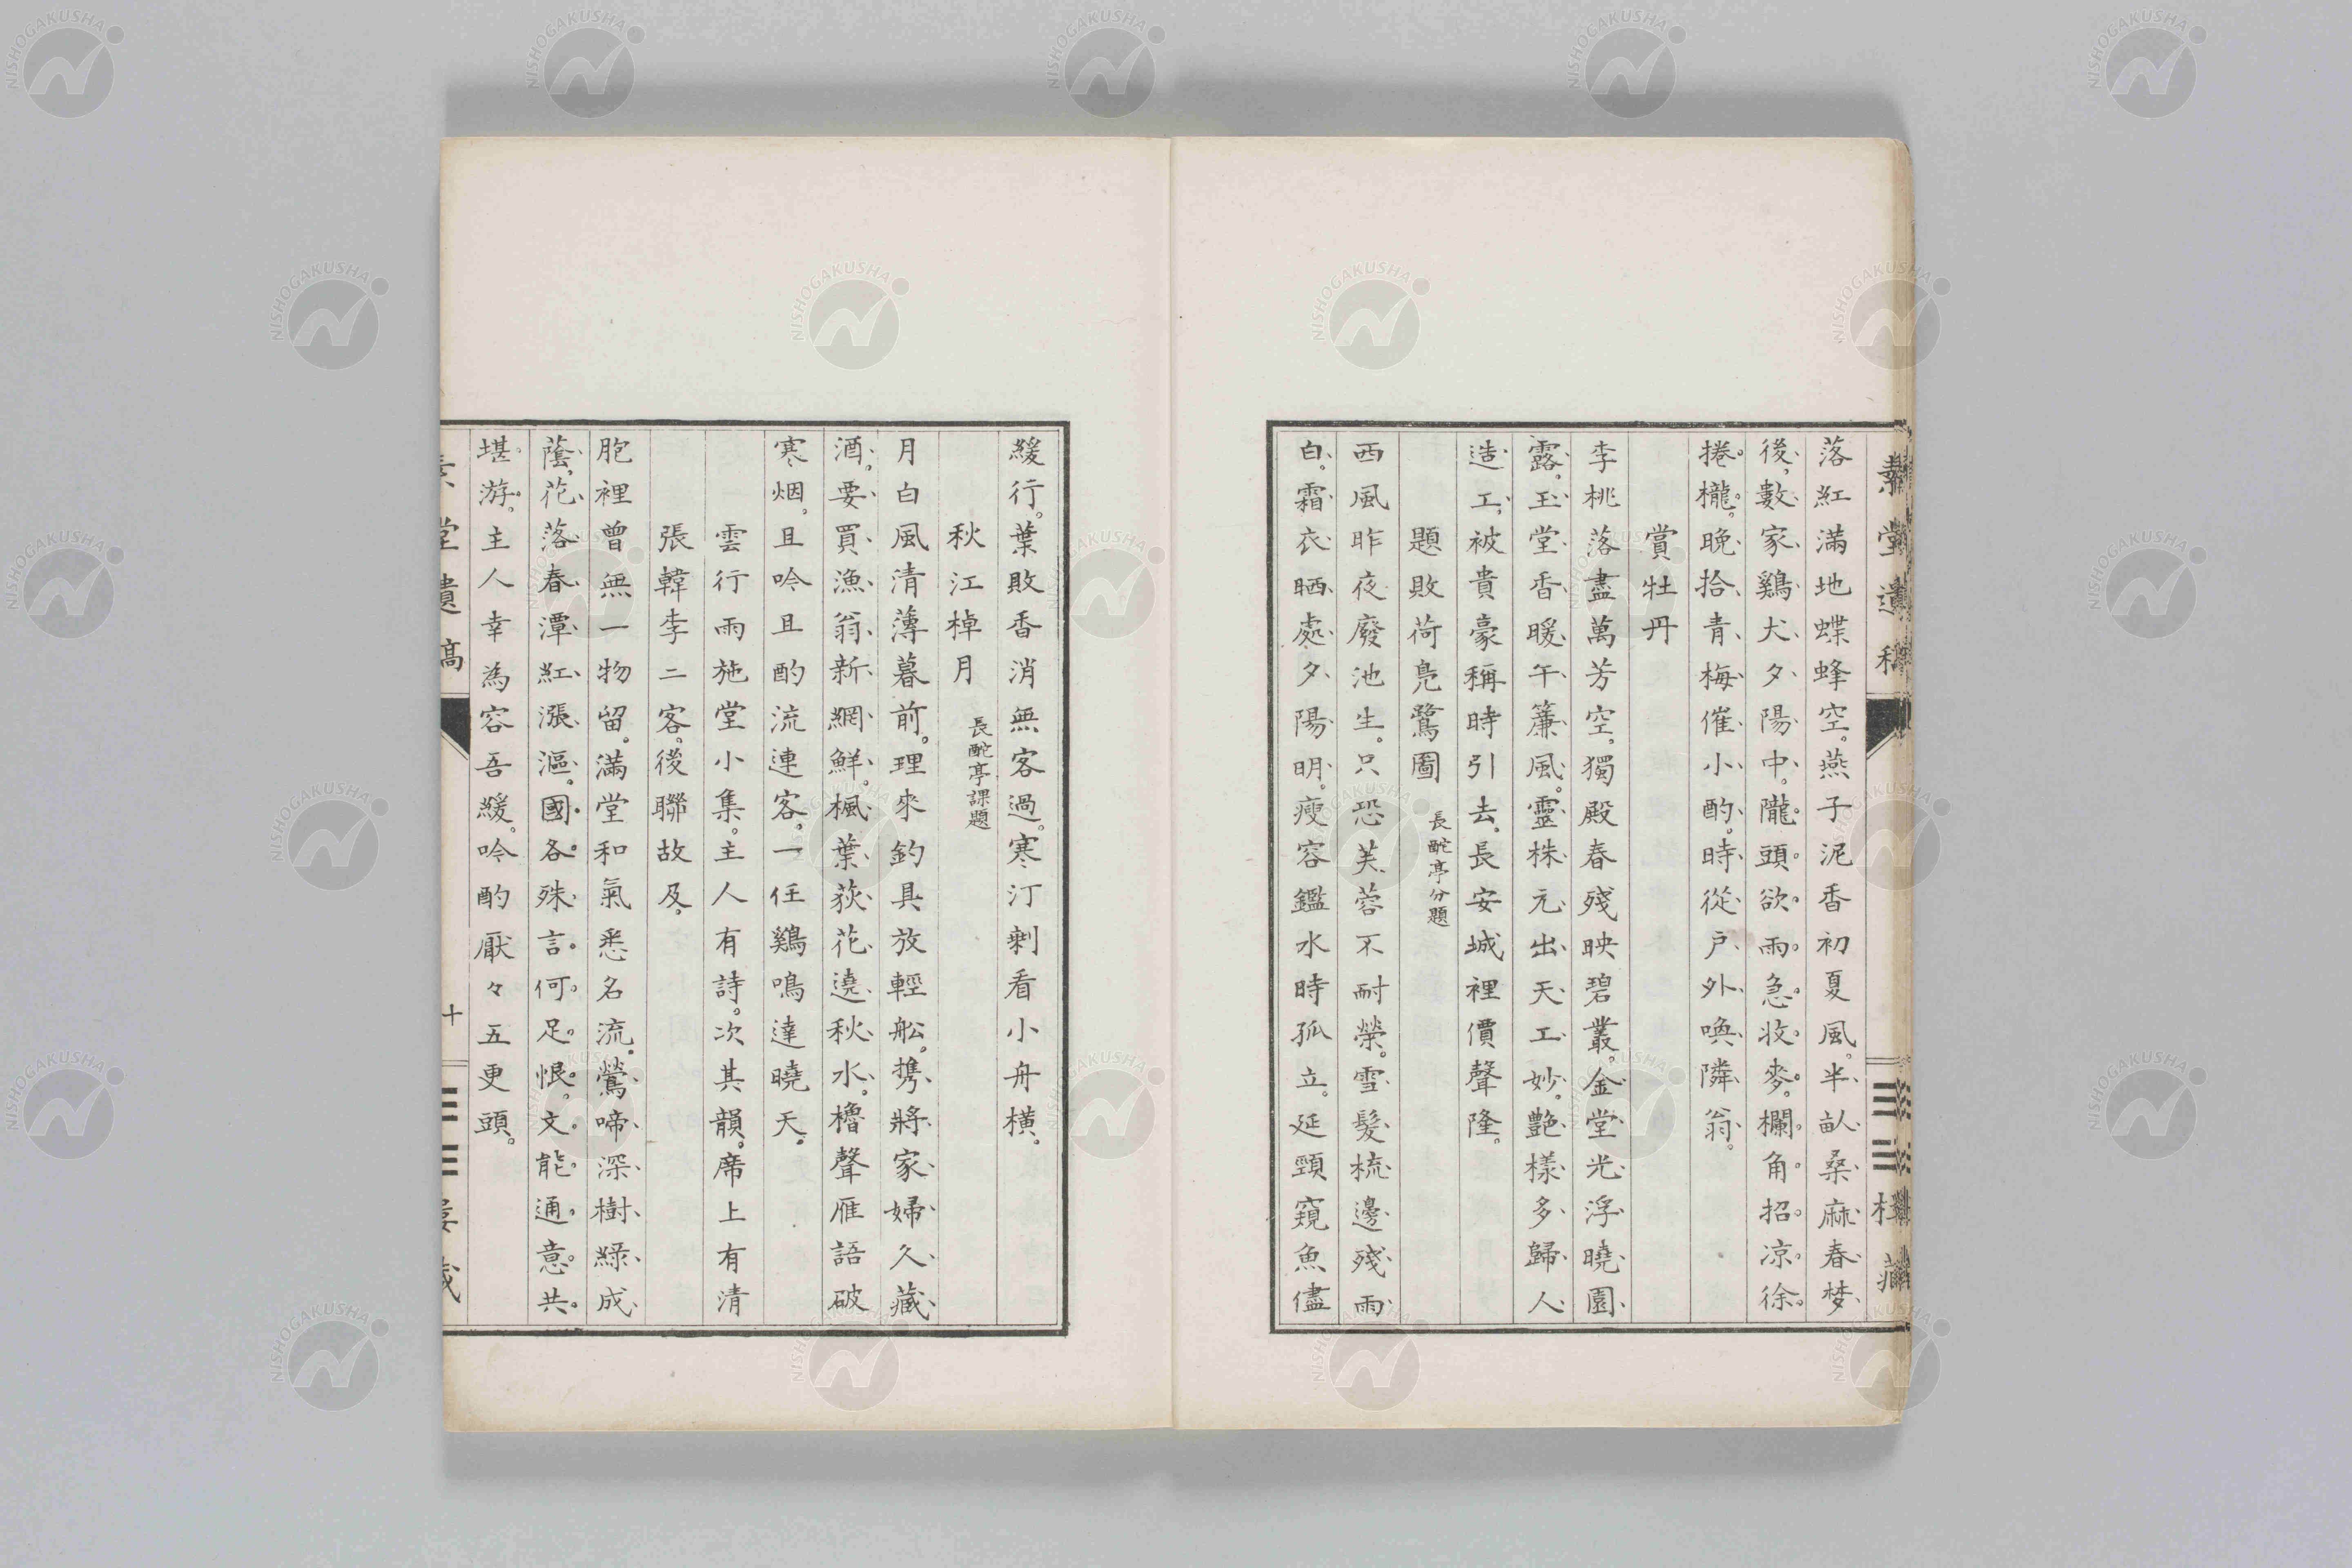 落紅滿地蝶蜂空。燕子泥香初夏風。半畒桑麻春梦
後、數家鷄犬夕陽中。隴頭欲雨急收麥。欄角招凉徐
捲櫳。晩拾青梅催小酌。時從戸外喚隣翁。
賞牡丹
李桃落盡萬芳空。獨殿春殘映碧叢。金堂光浮曉園
露。玉堂香暖午簾風。靈株元出天工妙。艶様多歸人
造工、被貴豪稱時引去。長安城裡價聲隆。
題敗荷鳧鷺圖 長酡亭分題
西風昨夜廢池生。只恐芙蓉不耐榮。雪髮梳邊殘雨
白。霜衣晒處夕陽明。瘦容鑑水時孤立。延頸窺魚儘
緩行。葉敗香消無客過。寒汀剩看小舟横。
秋江棹月 長酡亭課題
月白風清薄暮前。理來釣具放輕舩。携將家婦久藏
酒。要買漁翁新網鮮。楓葉荻花遶秋水。櫓聲雁語破
寒烟。且吟且酌流連客。一任鷄鳴達曉天。
雲行雨施堂小集。主人有詩。次其韻。席上有清
張韓李二客。後聯故及。
胞裡曾無一物留。滿堂和氣悉名流。鶯啼深樹綠成
蔭、花落春潭紅漲漚。國各殊言何足恨。文能通意共
堪游。主人幸為容吾緩。吟酌厭々五更頭。
素堂遺稿
十